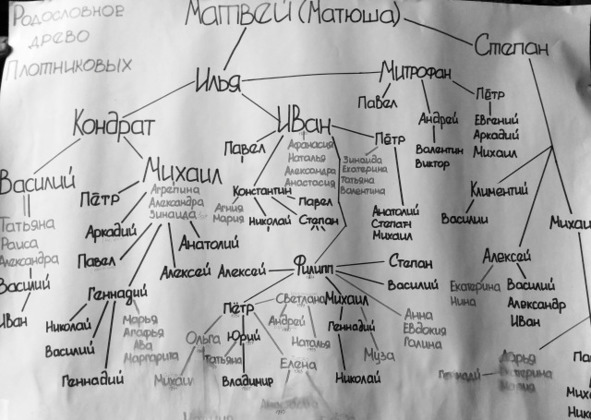 Родословное
древо
Плотниковых
Матвей (Матюша)
Степан
Илья
Митрофан
Павел
Андрей
Пётр
Валентин
Виктор
Евгений
Аркадий
Михаил
Кондрат
Иван
Василий
Татьяна
Раиса
Александра
Василий
Иван
Михаил
Агрепина
Александра
Зинаида
Пётр
Аркадий
Павел
Геннадий
Алексей
Анатолий
Николай
Василий
Геннадий
Марья
Агафья
Ава
Маргарита
Павел
Афанасия
Наталья
Александра
Анастасия
Константин
Агния
Мария
Николай
Павел
Степан
Пётр
Зинаида
Екатерина
Татьяна
Валентина
Анатолий
Степан
Михаил
Филипп
Алексей
Степан
Василий
Пётр
Светлана
Михаил
Анна
Евдокия
Галина
Ольга
Татьяна
Юрий
Владимир
Андрей
Наталья
Елена
Геннадий
Николай
Муза
Климентий
Василии
Алексей
Екатерина
Нина
Василий
Александр
Иван
Дарья
Екатерина